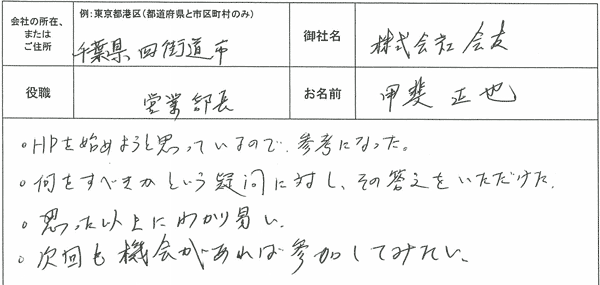 会社の所在、またはご住所
例：東京都港区（都道府県と市区町村のみ）
千葉県 四街道市
御社名
株式会社 会友
役職
営業部長
お名前
甲斐 正也
。HPを始めようと思っているので、参考になった。
。何をすべきかという疑問に対し、その答えをいただけた。
。思った以上にわかり易い。
。次回も機会があれば参加してみたい。